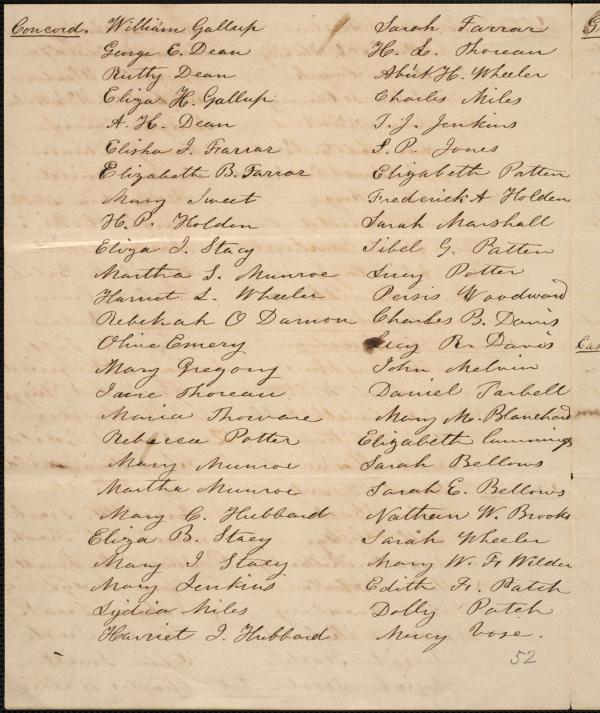 Concord.
William Gallup
George E. Dean
Rutty Dean
Eliza H. Gallup
A. H. Dean
Elisha J. Farrar
Elizabeth B. Farrar
Mary Sweet
H. P. Holden
Eliza J. Stacy
Martha S. Munroe
Harriet L. Wheeler
Rebekah O Darmon
Olive Emery
Mary Gregory
Jane Thoreau
Maria Thoreare
Rebecca Potter
Mary Munroe
Martha Munroe
Mary C. Hubbard
Eliza B. Stacy
Mary J Stacy
Mary Jenkins
Lydia Miles
Harriet J. Hubbard
Sarah Farrar
H. L. Thoreau
Abi't H. Wheeler
Charles Miles
T. J. Jenkins
S. P. Jones
Elizabeth Patten
Frederick A Holden
Sarah Marshall
Sibel G. Patten
Lucy Potter
Persis Woodward
Charles B. Davis
Lucy R. Davis
John Melvin
Daniel Tarbell
Mary M. Blanchard
Elizabeth Cummings
Sarah Bellows
Sarah E. Bellows
Nathan W. Brooks
Sarah Wheeler
Mary W. F. Wilder
Edith F. Patch
Dolly Patch
Mercy Vose.
52